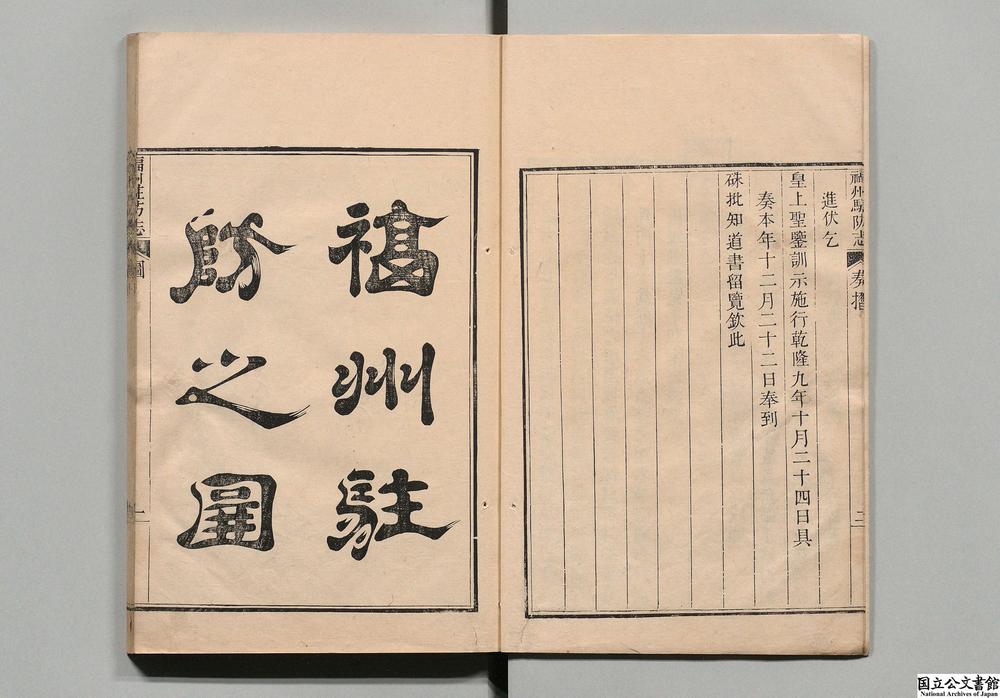 福州駐防志
奏摺
二
進伏乞
皇上聖鑒訓示施行乾隆九年十月二十四日具
奏本年十二月二十二日奉到
硃批知道書留覽欽此
福州駐
防之圖
福州駐防志
圖
一
国立公文書館
National Archives of Japan